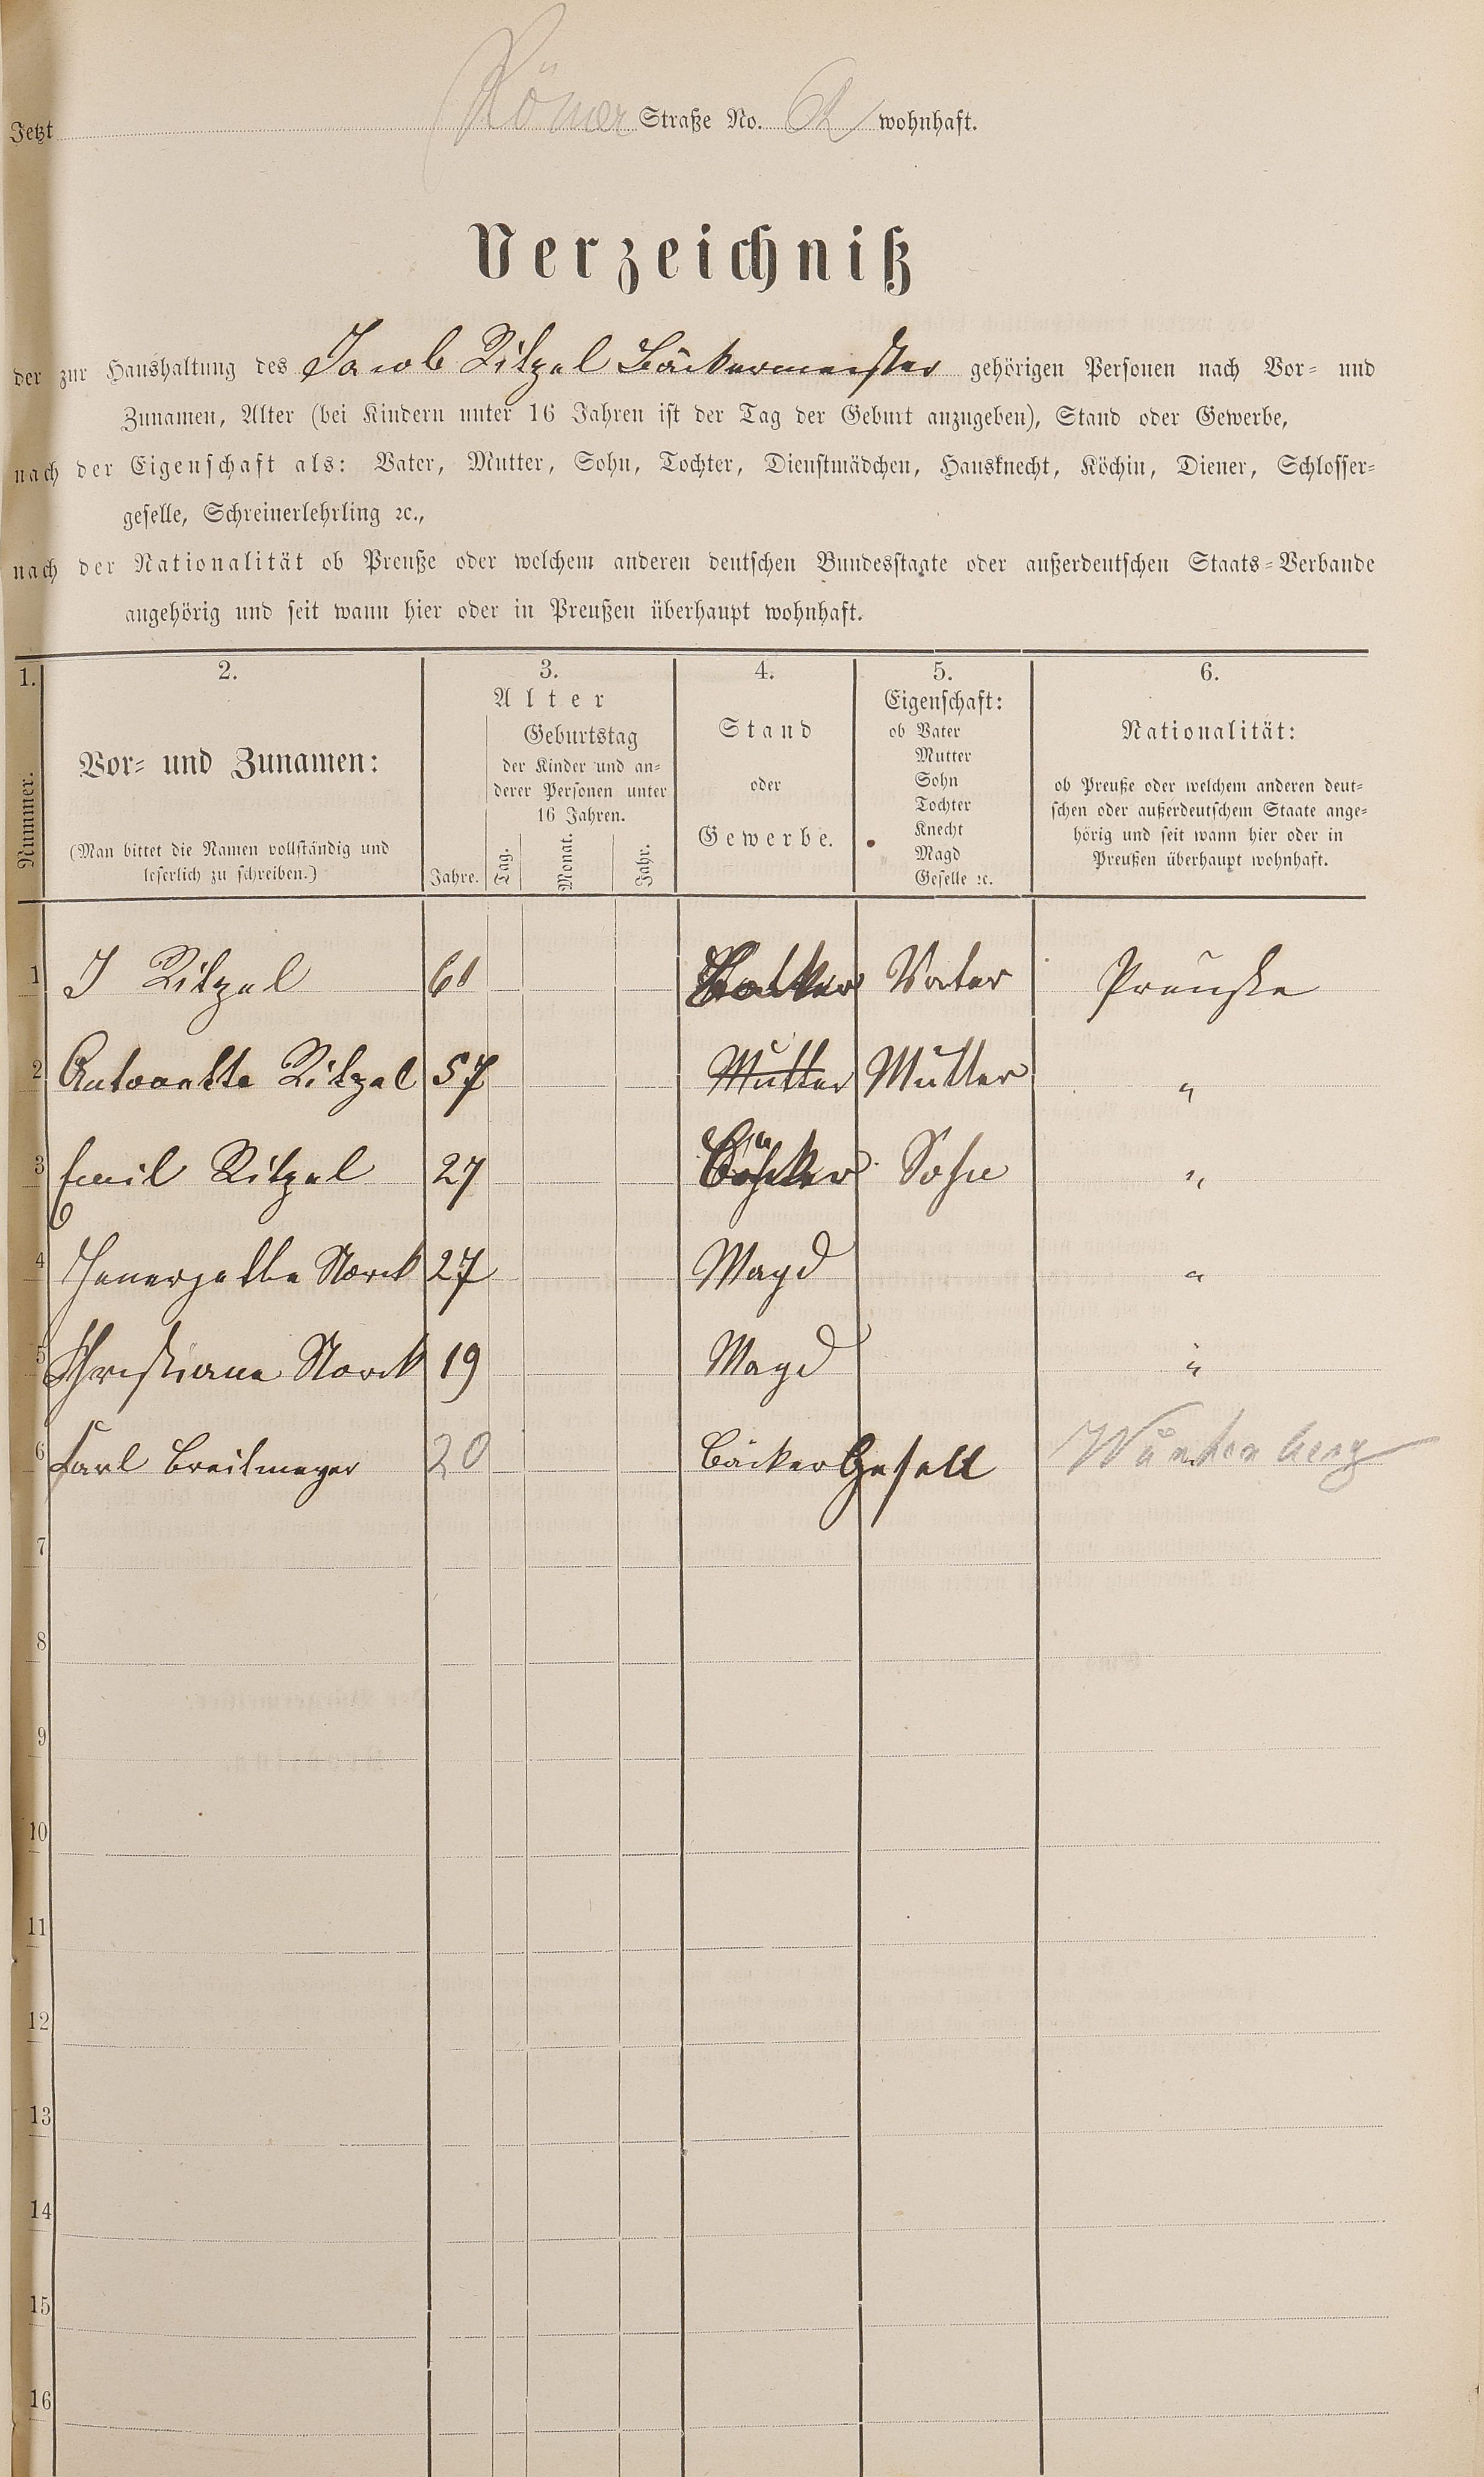 Jetzt Römer Straße No. 62 wohnhaft.
Verzeichniß
der zur Haushaltung des Jacob Ritzel Bäckermeister gehörigen Personen nach Vor- und
Zunamen, Alter (bei Kindern unter 16 Jahren ist der Tag der Geburt anzugeben), Stand oder Gewerbe,
nach der Eigenschaft als: Vater, Mutter, Sohn, Tochter, Dienstmädchen, Hausknecht, Köchin, Diener, Schlosser-
geselle, Schreinerlehrling ꝛc.,
nach der Nationalität ob Preuße oder welchem anderen deutschen Bundesstaate oder außerdeutschen Staats-Verbande
angehörig und seit wann hier oder in Preußen überhaupt wohnhaft.
1.
Nummer.
2.
Vor- und Zunamen:
(Man bittet die Namen vollständig und
leserlich zu schreiben.)
3.
Alter
Jahre.
Geburtstag
der Kinder und an-
derer Personen unter
16 Jahren.
Tag. Monat. Jahr.
4.
Stand
oder
Gewerbe.
5.
Eigenschaft:
ob Vater
Mutter
Sohn
Tochter
Knecht
Magd
Geselle ꝛc.
6.
Nationalität:
ob Preuße oder welchem anderen deut-
schen oder außerdeutschem Staate ange-
hörig und seit wann hier oder in
Preußen überhaupt wohnhaft.
1 J Ritzel 61 Vater Preuße
2 Antoanette Ritzel 57 Mutter Mutter "
3 Emil Ritzel 27 Bäcker Sohn "
4 Norck 27 Magd "
5 Christiane Norck 19 Magd "
6 Carl Breitmeyer 20 Bäcker Gesell Würtenberg
7
8
9
10
11
12
13
14
15
16